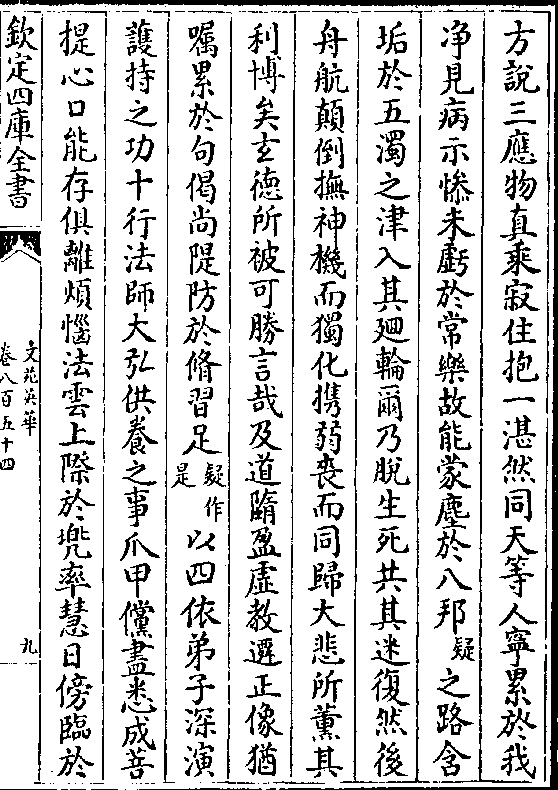 方說三應物真乘寂住抱一湛然同天等人寧累於我
净見病示慘未虧於常樂故能蒙塵於八邦疑之路含
垢於五濁之津入其廻輪爾乃脫生死共其迷復然後
舟航顛倒撫神機而獨化携弱喪而同歸大悲所薰其
利博矣玄德所被可勝言哉及道隨盈虛教遷正像猶
囑累於句偈尚隄防於脩習足疑作是以四依弟子深演
護持之功十行法師大弘供養之事爪甲儻盡悉成菩
提心口能存俱離煩惱法雲上際於兠率慧日傍臨於
欽定四庫全書
文苑英華
卷八百五十四
九